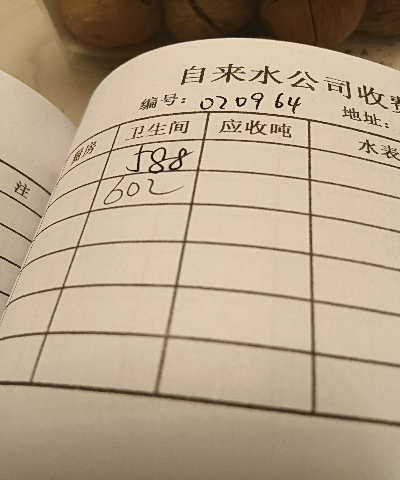 自来水公司收费
编号: 020964 地址:
注 厨房 卫生间 应收吨 水表
588
602